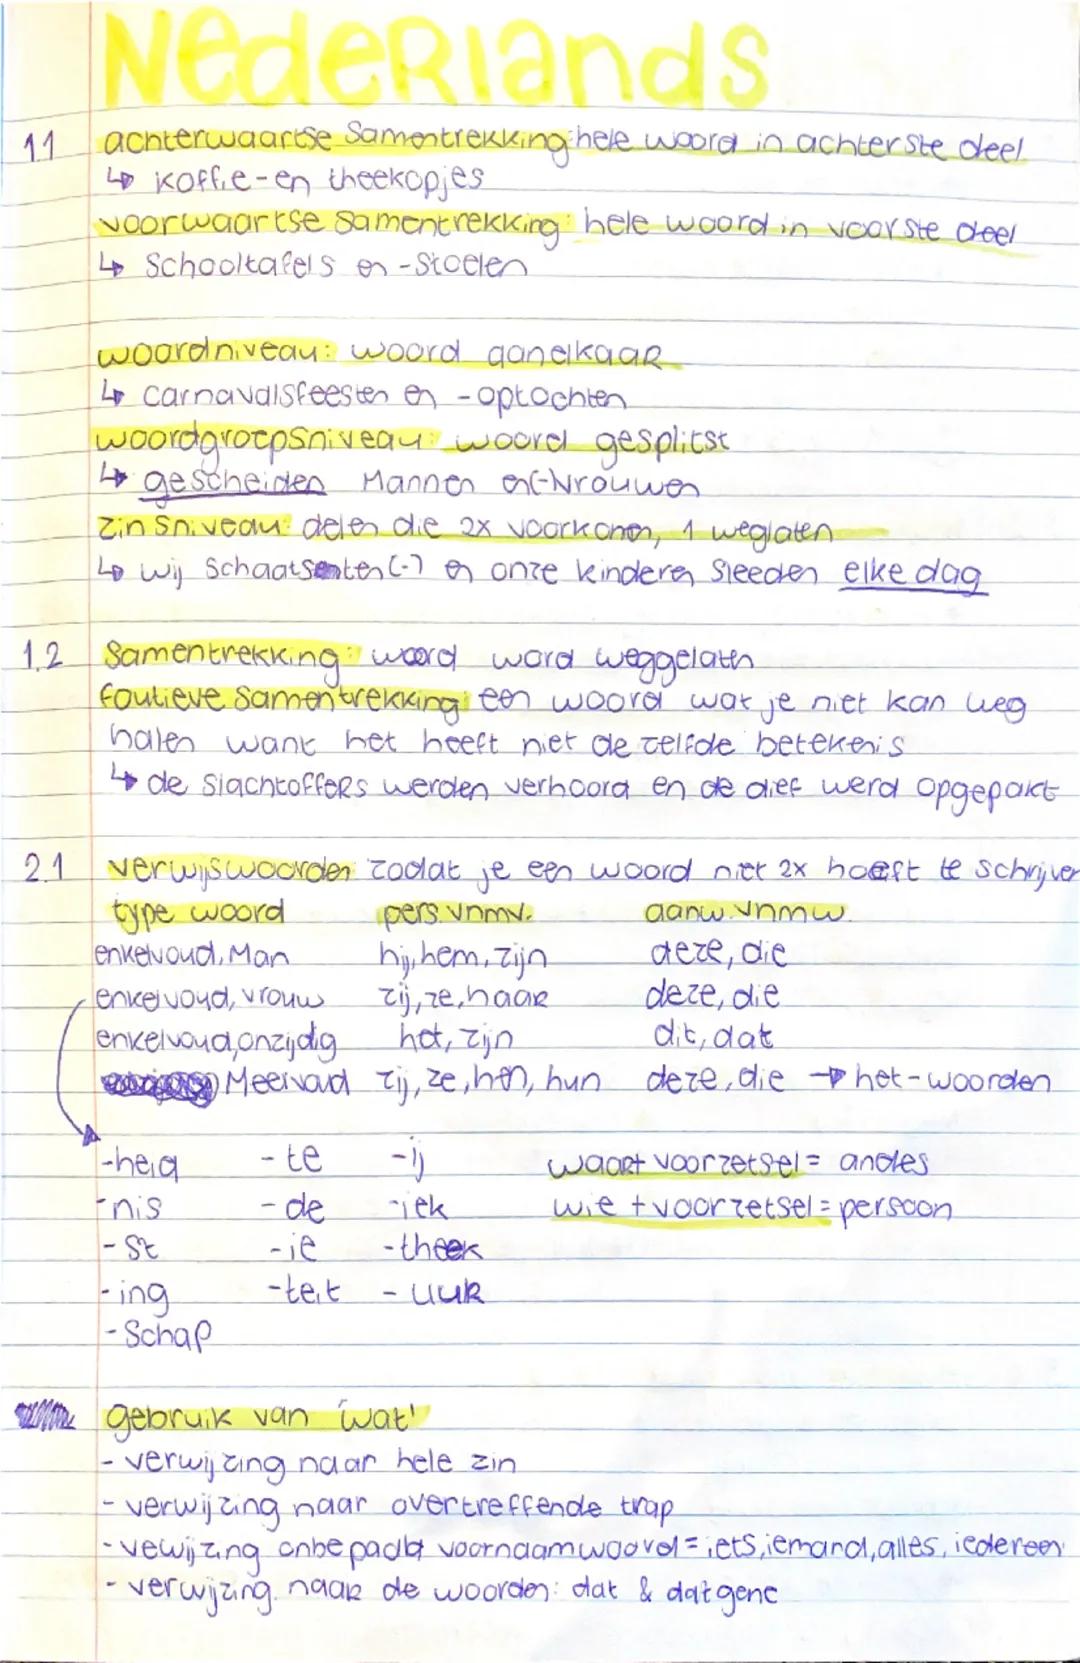 NedeRlands
1.1 achterwaartse Samentrekking: hele woord in achterste deel
↳ koffie-en theekopjes
voorwaartse Samentrekking: hele woord in voorste deel
↳ Schooltafels en -Stoelen
woordniveau: woord aanelkaaR
↳ Carnavalsfeesten en -optochten
woordgroepsniveau: woord gesplitst
↳ gescheiden Mannen en(-)vrouwen
Zinsniveau: delen die 2x voorkomen, 1 weglaten
↳ wij Schaatsenten (-) en onze kinderen Sleeden elke dag
1.2 Samentrekking: woord word weggelaten
foutieve Samentrekking: een woord wat je niet kan weg
halen want het heeft niet de zelfde betekenis
↳ de SlachtoffeRs werden verhoord en de dief werd opgepakt
2.1 verwijswoorden: zodat je een woord niet 2x hoeft te schrijven
type woord pers.vnmv. aanw.vnmw.
enkelvoud, Man hij, hem, zijn deze, die
enkelvoud, vrouw zij, ze, haaR deze, die
enkelvoud, onzijdig het, zijn dit, dat
Meervoud zij, ze, hen, hun deze, die → het-woorden
-heid -te -ij waaR+voorzetsel = andes
-nis -de -iek wie + voorzetsel = persoon
-St -ie -theek
-ing -teit -uuR
-Schap
gebruik van 'wat'
- verwijzing naar hele zin
- verwijzing naar overtreffende trap
- vewijzing onbepaald voornaamwoord = iets, iemand, alles, iedereen
- verwijzing naaR de woorden: dat & datgene